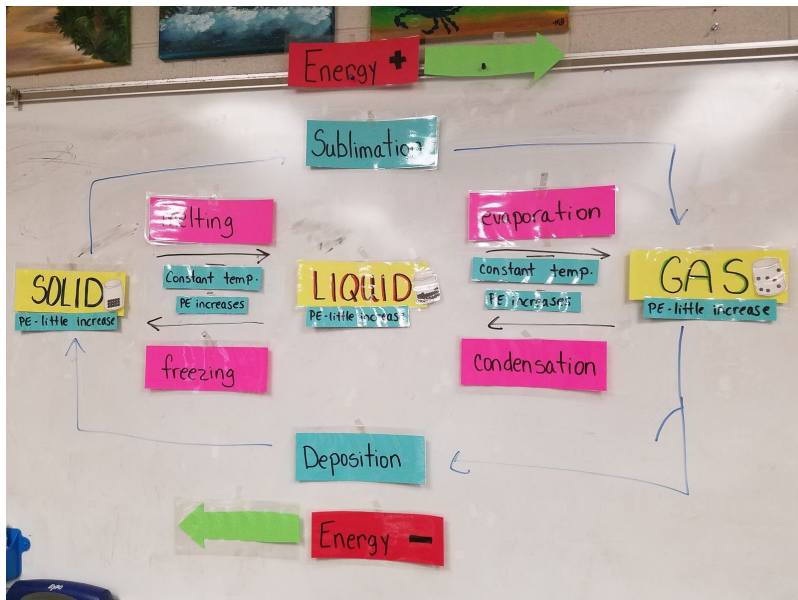 Energy +
Sublimation
melting
evaporation
SOLID
PE-little increase
Constant temp.
PE increases
LIQUID
PE-little increase
Constant temp.
PE increases
GAS
PE-little increase
freezing
condensation
Deposition
Energy -
EXPO